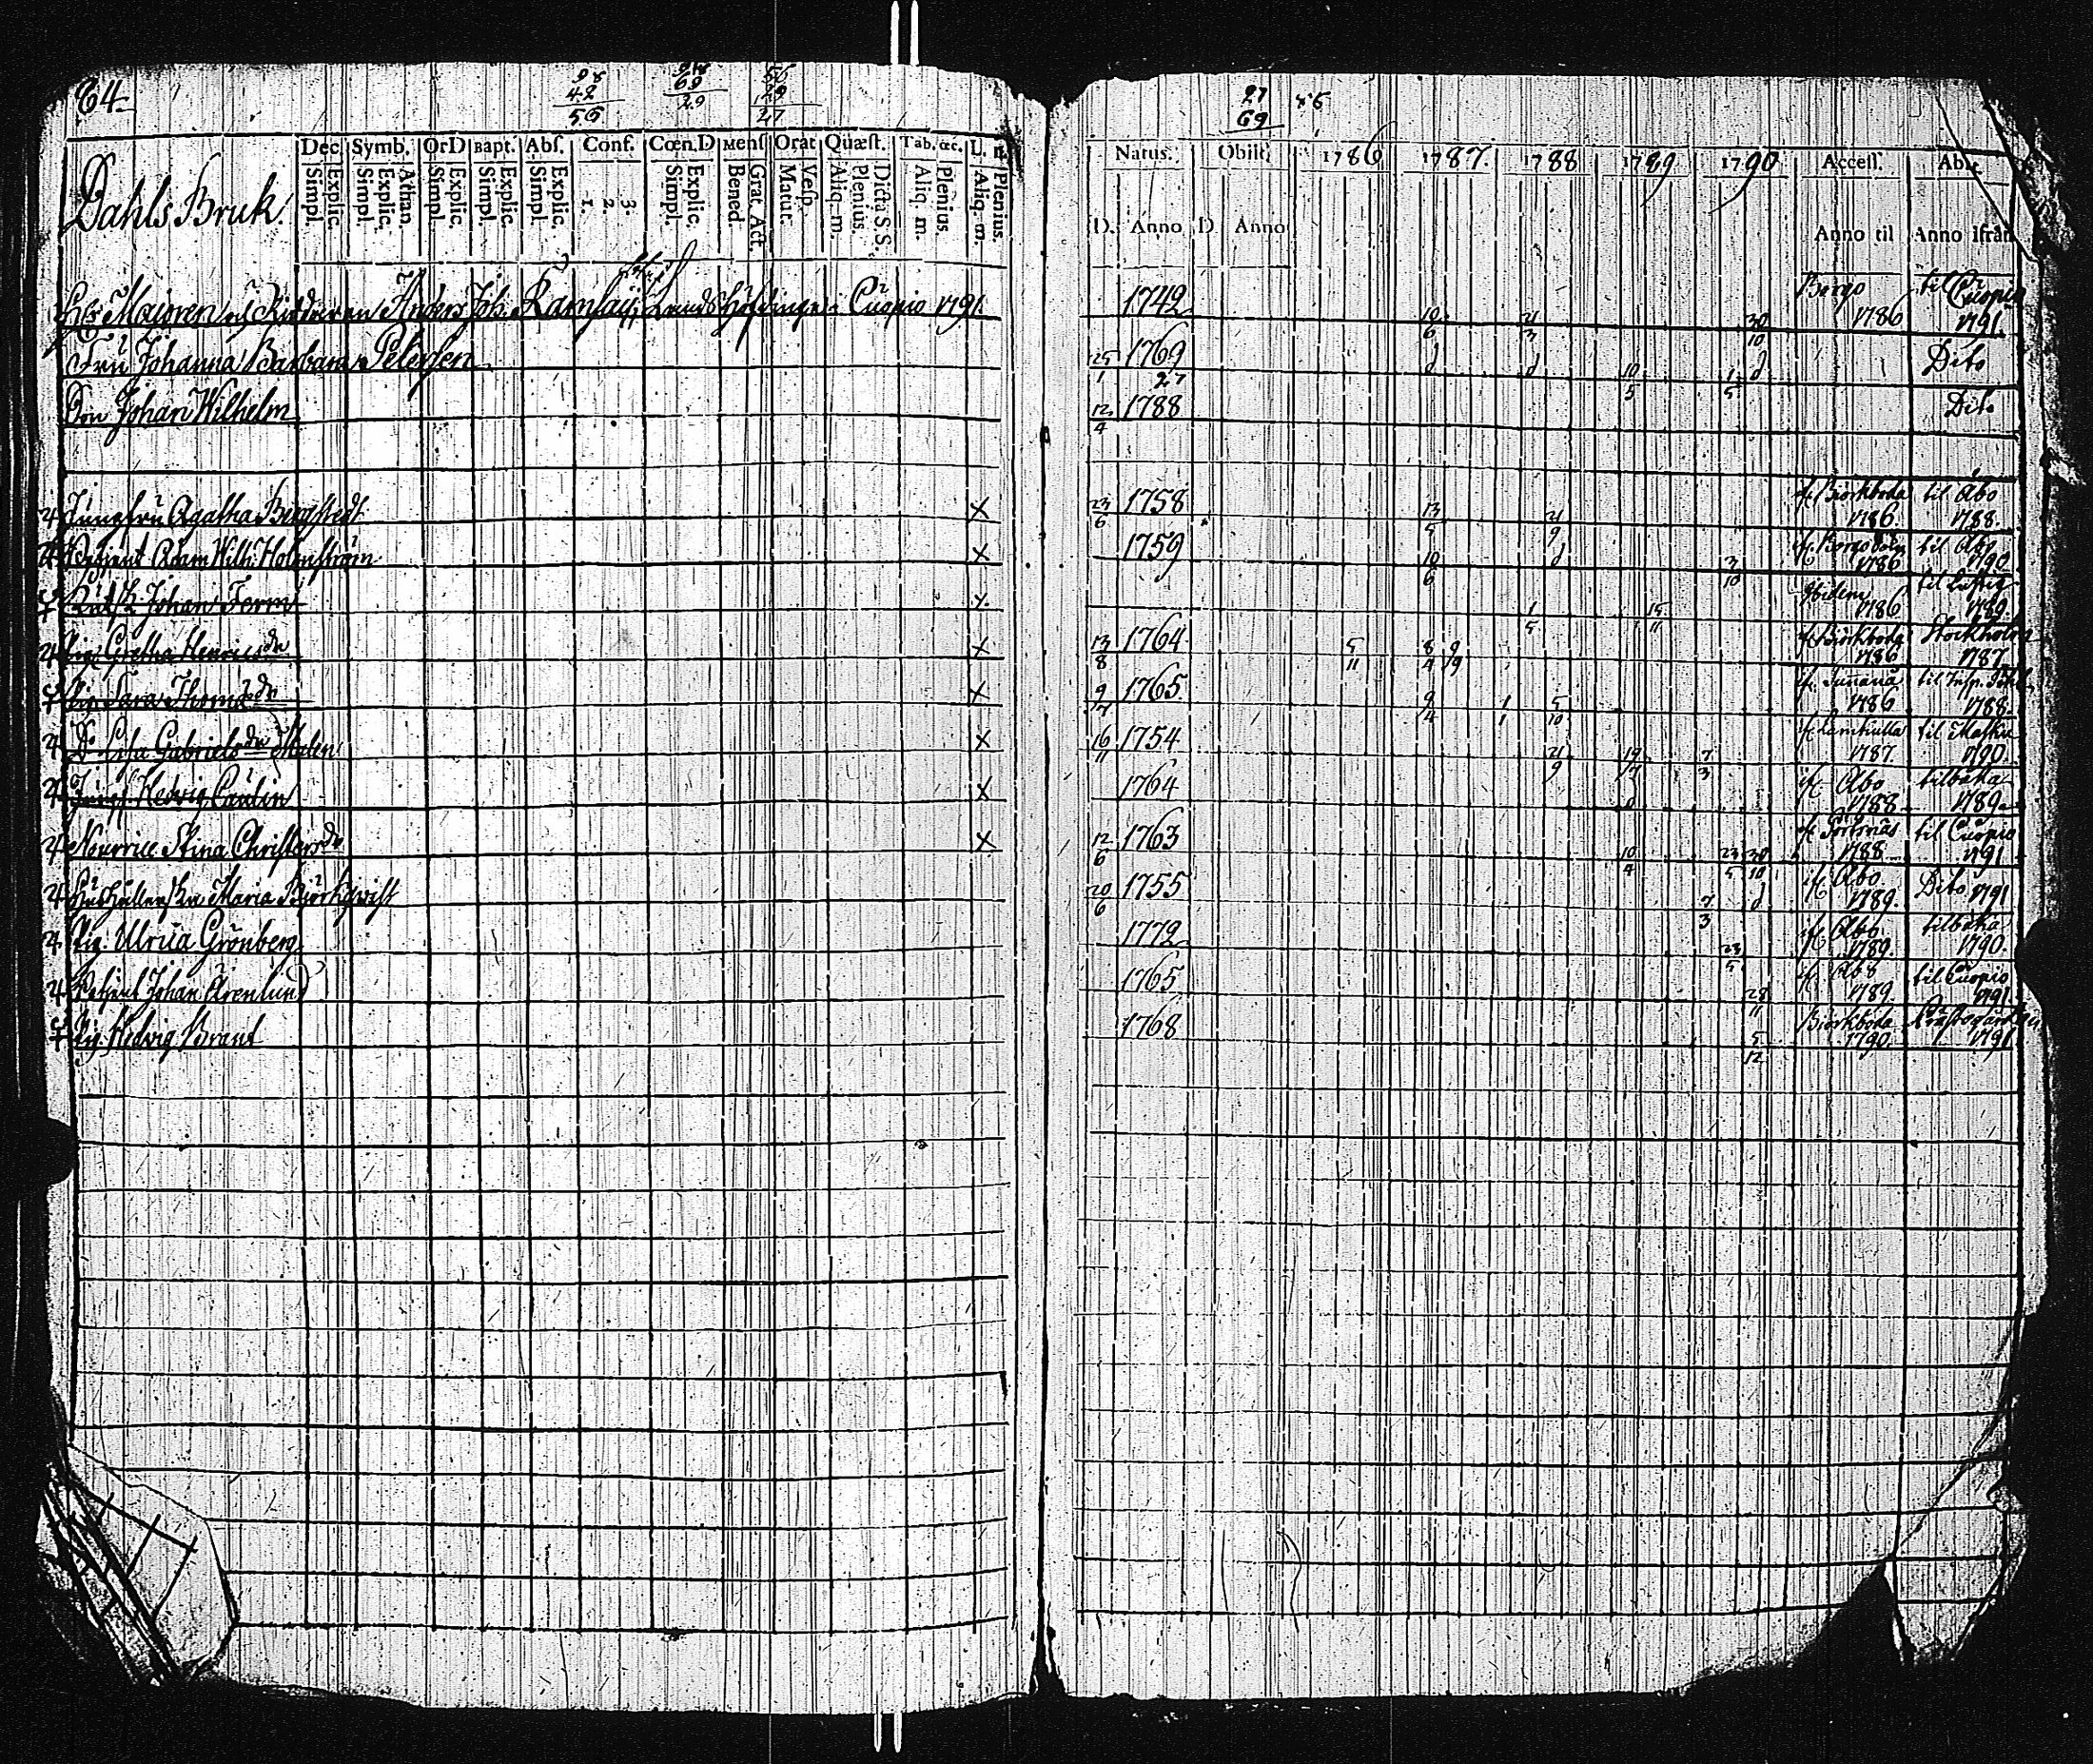 64
98
42
56
98
69
29
56
29
27
27
69
86
Dahls Bruk.
Dec. Symb. OrD Bapt. Abs. Conf. Cœn.D Mens Orat Quæst. Tab. œc. L. n.
Simpl. Explic. Simpl. Explic. Athan. Simpl. Explic. Simpl. Explic. Simpl. Explic. 1. 2. 3. Simpl. Explic. Bened. Grat. Act. Matut. Vesp. Aliq. m. Plenius. Dicta S.S. Aliq. m. Plenius. Aliq. m. Plenius.
Natus. Obiit. 1786 1787. 1788 1789 1790 Access. Abit.
D. Anno D Anno Anno til Anno ifrån
Hr Majoren och Riddaren Anders Joh. Ramsay, Landshöfdinge i Cuopio 1791 1749 10/6 21/3 30/10 Borgo 1786 til Cuopio 1791
Fru Johanna Barbara Petersen 25/1 1769 27 d d 10/5 1/5 d Dito
Son Johan Wilhelm 12/4 1788 Dito
Jungfru Agatha Bergstedt X 23/6 1758 13/5 21/9 if. Biörkboda 1786. til Åbo 1788.
Betjent Adam Wilh. Holmström X 1759 10/6 d 3/10 1786 til Åbo 1790
Johan Ferm X 1/5 15/11 Ibidem 1786 1789
Pig. Gretha Henricsdr X 13/8 1764 5/11 8/4 9/9 if. Biörkboda 1786 Stockholm 1787
Pig. Sara Thomasdr X 9/7 1765 9/4 1/1 5/10 1786 1788.
Do Lisa Gabrielsdr Malen X 16/11 1754 21/9 19/7 7/3 1787. 1790.
Jungf. Hedvig Paulin X 1764 d if. Åbo 1788 tilbaka 1789
Nourrice Stina Christersdr X 12/6 1763 10/4 23/5 30/10 1788 til Cuopio 1791
Maria Biörkqwist 20/6 1755 7/3 d if. Åbo 1789. Dito 1791
Pig. Ulrica Grönberg 1772 23/5 if. Åbo 1789. tilbaka 1790.
Betjent Johan Arenlund 1765 28/11 if. Åbo 1789. til Cuopio 1791
Pig. Hedvig Brand 1768 5/12 Biörkboda 1790 1791